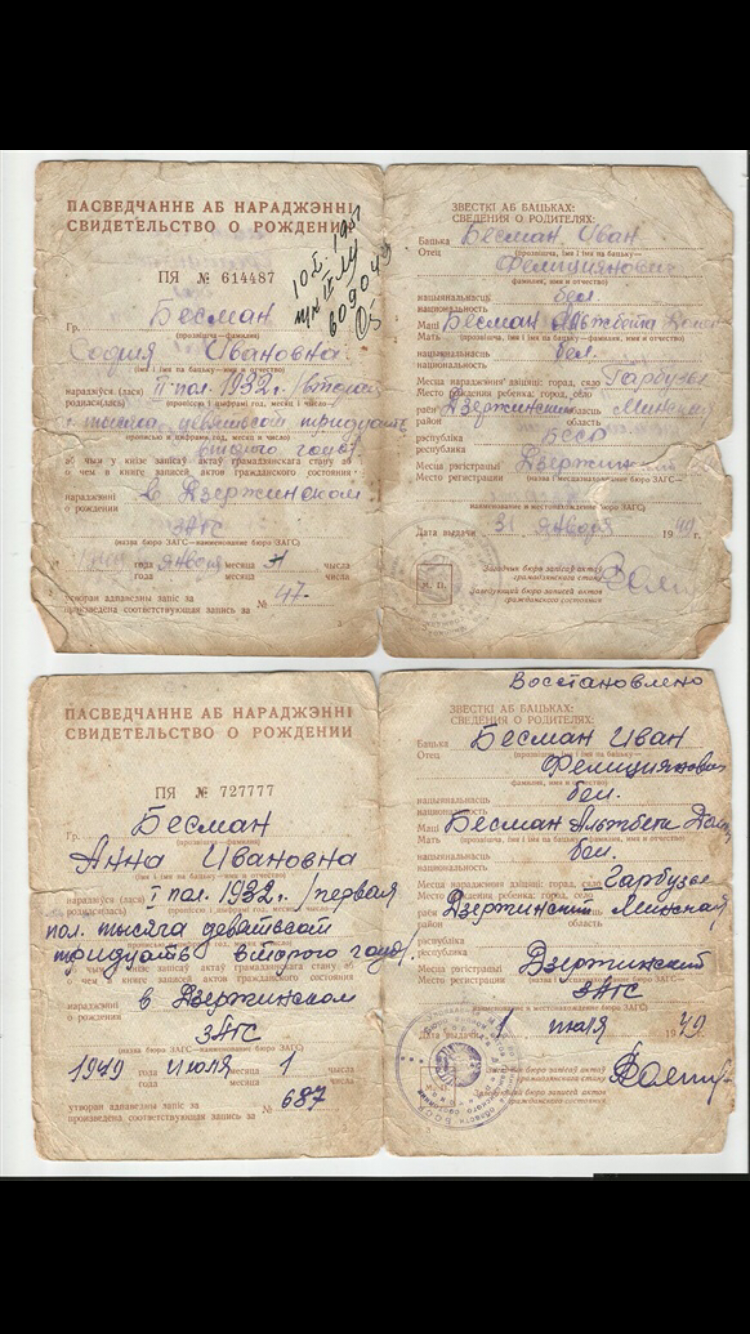 ПАСВЕДЧАННЕ АБ НАРАДЖЭННІ
СВИДЕТЕЛЬСТВО О РОЖДЕНИИ
ПЯ № 614487
10.
609049
Гр. Бесман
(прозвішча—фамилия)
София Ивановна
(імя і імя па бацьку—имя и отчество)
нарадзіўся (лася) II пол. 1932 г. /вторая
родился(лась) (прописью и цифрами год, месяц и число)
тысяча девятьсот тридцать
(прописью и цифрами год, месяц и число)
второго года/
аб чым у кнізе запісаў актаў грамадзянскага стану аб
о чем в книге записей актов гражданского состояния
нараджэнні в Дзержинском
о рождении
ЗАГС
(назва бюро ЗАГС—наименование бюро ЗАГС)
года января месяца 31 чысла
года месяца числа
утворан адпаведны запіс за № 47
произведена соответствующая запись за
ЗВЕСТКІ АБ БАЦЬКАХ:
СВЕДЕНИЯ О РОДИТЕЛЯХ:
Бацька Бесман Иван
Отец (прозвішча, імя і імя па бацьку—
Фелициянович
фамилия, имя и отчество)
нацыянальнасць бел.
национальность
Маці Бесман Альжбета
Мать (прозвішча, імя і імя па бацьку—фамилия, имя и отчество)
нацыянальнасць бел.
национальность
Месца нараджэння дзіцяці: горад, сяло Гарбузы
Место рождения ребенка: город, село
раён Дзержинский вобласць Минская
район область
рэспубліка БССР
республика
Месца рэгістрацыі Дзержинский
Место регистрации (назва і месцазнаходжэнне бюро ЗАГС—
наименование и местонахождение бюро ЗАГС)
Дата выдачи 31 января 1949 г.
М. П.
Загадчык бюро запісаў актаў
грамадзянскага стану
Заведующий бюро записей актов
гражданского состояния
ПАСВЕДЧАННЕ АБ НАРАДЖЭННІ
СВИДЕТЕЛЬСТВО О РОЖДЕНИИ
ПЯ № 727777
Гр. Бесман
(прозвішча—фамилия)
Анна Ивановна
(імя і імя па бацьку—имя и отчество)
нарадзіўся (лася) I пол. 1932 г. /первая
родился(лась) (прописью и цифрами год, месяц и число)
пол. тысяча девятьсот
(прописью и цифрами год, месяц и число)
тридцать второго года/.
аб чым у кнізе запісаў актаў грамадзянскага стану аб
о чем в книге записей актов гражданского состояния
нараджэнні в Дзержинском
о рождении
ЗАГС
(назва бюро ЗАГС—наименование бюро ЗАГС)
1949 года июля месяца 1 чысла
года месяца числа
утворан адпаведны запіс за № 687
произведена соответствующая запись за
Восстановлено
ЗВЕСТКІ АБ БАЦЬКАХ:
СВЕДЕНИЯ О РОДИТЕЛЯХ:
Бацька Бесман Иван
Отец (прозвішча, імя і імя па бацьку—
Фелициянович
фамилия, имя и отчество)
нацыянальнасць бел.
национальность
Маці Бесман Альжбета
Мать (прозвішча, імя і імя па бацьку—фамилия, имя и отчество)
нацыянальнасць бел.
национальность
Месца нараджэння дзіцяці: горад, сяло Гарбузы
Место рождения ребенка: город, село
раён Дзержинский Минская
район область
рэспубліка
республика
Месца рэгістрацыі Дзержинский
Место регистрации
ЗАГС
наименование и местонахождение бюро ЗАГС)
Дата выдачи 1 июля 1949
Загадчык бюро запісаў актаў
грамадзянскага стану
Заведующий бюро записей актов
гражданского состояния